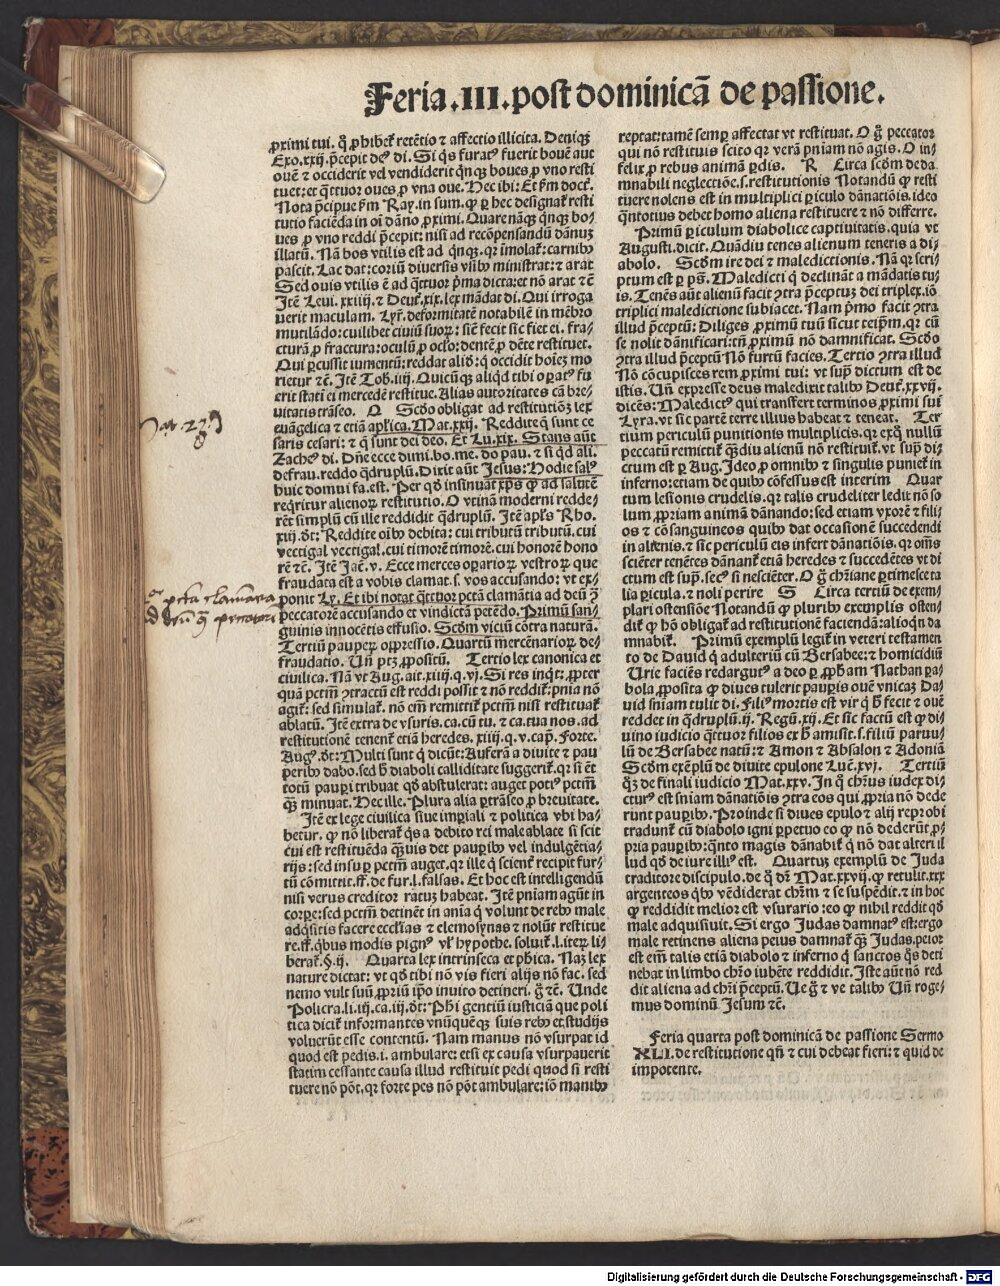 Feria .III. post dominicā de passione.
ꝓximi tui. ꝙ ꝓhibet᷒ retētio ⁊ affectio illicita. Deniqꝫ
Exo.xxij. p̄cepit de⁹ di. Si q̇s furat⁹ fuerit bouē aut
ouē ⁊ occiderit vel vendiderit qͥnqꝫ boues ꝓ vno resti
tuet: et q̄ttuor oues ꝓ vna oue. Hec ibi: Et ẜm doct.
Nota p̄cipue ẜm Ray. in sum. ꝙ ꝑ hec designat᷒ resti
tutio faciēda in oī dāno ꝓximi. Quare nāqꝫ qͥnqꝫ bo⸗
ues ꝓ vno reddi p̄cepit: nisi ad recōpensandū dānuꝫ
illatū. Nā bos vtilis est ad qͥnqꝫ. qꝛ imolat᷒: carnibꝰ
pascit. Lac dat: coriū diuersis vsibꝰ ministrat: ⁊ arat
Sed ouis vtilis ē ad q̄ttuor pͥma dicta: et nō arat ⁊c̄
Itē Leui.xxiiij. ⁊ Deut᷒.xix. lex mādat di. Qui irroga
uerit maculam. Lyr᷒. deformitatē notabilē in mēbro
mutilādo: cuilibet ciuiū suoꝝ: sic̄ fecit sic fiet ei. fra⸗
cturā ꝓ fractura: oculū ꝓ oc̄lo: dentē ꝓ dēte restituet.
Qui ꝑcussit iumentū: reddat aliō: q̇ occidit hoīeꝫ mo
rietur ⁊c̄. Itē Tob.iiij. Quicūqꝫ aliqͥd tibi oꝑat⁹ fu
erit stati ei mercedē restitue. Alias autoritates cā bre⸗
uitatis trāseo. Q Scd̄o obligat ad restitutiōꝫ lex
euāgelica ⁊ etiā apl̄ica. Mat.xxij. Reddite q̄ sunt ce
saris cesari: ⁊ q̄ sunt dei deo. Et Lu.xix. Stans aūt
Zache⁹ di. Dn̄e ecce dimi.bo.me. do pau. ⁊ si qͥd ali.
defrau. reddo q̄druplū. Dixit aūt Jesus: Hodie sal⁹
huic domui fa. est. Per qd̄ insinuat xp̄s ꝙ ad salutē
reqͥritur alienoꝝ restitutio. O vtinā moderni redde⸗
rēt simplū cū ille reddidit q̄druplū. Itē apl̄s Rho.
xiij. d̄t: Reddite oībꝰ debita: cui tributū tributū. cui
vectigal vectigal. cui timorē timorē. cui honorē hono
rē ⁊c̄. Itē Jac̄.v. Ecce merces oꝑarioꝝ vestroꝝ que
fraudata est a vobis clamat. s. vos accusando: vt ex⸗
ponit Ly. Et ibi notat q̄ttuor pctā clamātia ad deū ꝯ̄
peccatorē accusando et vindictā petēdo. Primū san⸗
guinis innocētis effusio. Scd̄m viciū cōtra naturā.
Tertiū pauperꝝ oppressio. Quartū mercēnarioꝝ de⸗
fraudatio. Un̄ ptꝫ ꝓpositū. Tertio lex canonica et
ciuilica. Nā vt Aug. ait.xiiij.q.vj. Si res inqͥt: ꝓpter
quā pctm̄ ꝯtractū est reddi possit ⁊ nō reddit᷒: pn̄ia nō
agit᷒: sed simulat᷒. nō em̄ remittit᷒ pctm̄ nisi restituat᷒
ablatū. Itē extra de vsuris. ca. cū tu. ⁊ ca. tua nos. ad
restitutionē tenent᷒ etiā heredes. xiiij.q.v.cap̄. Forte.
Aug⁹. d̄t: Multi sunt q̇ dicūt: Auferā a diuite ⁊ pau
peribꝰ dabo. sed h̄ diaboli calliditate suggerit᷒. qꝛ si ēt
totū pauꝑi tribuat qd̄ abstulerat: auget poti⁹ pctm̄
q̄ꝫ minuat. Hec ille. Plura alia ꝑtrāseo ꝓ breuitate.
Itē ex lege ciuilica siue imꝑiali ⁊ politica vbi ha⸗
betur. ꝙ nō liberat᷒ q̇s a debito rei male ablate si scit
cui est restituēda q̄ꝫuis det pauꝑibꝰ vel indulgētia⸗
rijs: sed insuꝑ pctm̄ auget. qꝛ ille q̇ scient᷒ recipit fur⸗
tū cōmittit. ff. de fur. l. falsas. Et hoc est intelligendū
nisi verus creditor ratuꝫ habeat. Itē pn̄iam agūt in
corꝑe: sed pctm̄ detinēt in aīa q̇ volunt de rebꝰ male
adqͥsitis facere eccl̄ias ⁊ elemosynas ⁊ nolūt restitue
re. ff. qͥbus modis pign⁹ vl̄ hypothe. soluit᷒. l. iteꝝ li⸗
berat᷒. §.ij. Quarta lex intrinseca et ph̄ica. Naꝫ lex
nature dictat: vt qd̄ tibi nō vis fieri alijs nō fac. sed
nemo vult suū ꝓpriū ip̄o inuito detineri. g̊ ⁊c̄. Unde
Policra.li.iij.ca.iij. d̄t: Ph̄i gentiū iusticiā que poli
tica dicit᷒ informantes vnūquēqꝫ suis rebꝰ et studijs
voluerūt esse contentū. Nam manus nō vsurpat id
quod est pedis. i. ambulare: etsi ex causa vsurpauerit
statim cessante causa illud restituit pedi quod si resti
tuere nō pōt. qꝛ forte pes nō pōt ambulare: iō manibꝰ
reptat: tamē semꝑ affectat vt restituat. O g̊ peccator
qui nō restituis scito qꝛ verā pn̄iam nō agis. O in⸗
felix ꝓ rebus animā ꝑdis. R Circa scd̄m de da
mnabili neglectiōe. s. restitutionis Notandū ꝙ resti
tuere nolens est in multiplici ꝑiculo dānatiōis. ideo
qͣntotius debet homo aliena restituere ⁊ nō differre.
Primū ꝑiculum diabolice captiuitatis. quia vt
Augusti. dicit. Quādiu tenes alienum teneris a di⸗
abolo. Scd̄m ire dei ⁊ maledictionis. Nā qꝛ scri⸗
ptum est ꝑ ps̄. Maledicti q̇ declināt a mādatis tu⸗
is. Tenēs aūt alienū facit ꝯtra p̄ceptuꝫ dei triplex. iō
triplici maledictione subiacet. Nam pͥmo facit ꝯtra
illud p̄ceptū: Diliges ꝓximū tuū sicut teip̄m. qꝛ cū
se nolit dānificari: tn̄ ꝓximū nō damnificat. Scd̄o
ꝯtra illud p̄ceptū Nō furtū facies. Tertio ꝯtra illud
Nō cōcupisces rem ꝓximi tui: vt supͣ dictum est de
istis. Un̄ expresse deus maledixit talibꝰ Deut᷒.xxvij.
dicēs: Maledict⁹ qui transfert terminos ꝓximi sui
Lyra. vt sic partē terre illius habeat ⁊ teneat. Ter
tium periculū punitionis multiplicis. qꝛ exqͦ nullū
peccatū remittit᷒ q̄ꝫdiu alienū nō restituit᷒. vt supͣ di⸗
ctum est ꝑ Aug. Ideo ꝓ omnibꝰ ⁊ singulis puniet᷒ in
inferno: etiam de quibꝰ cōfessus est interim Quar
tum lesionis crudelis. qꝛ talis crudeliter ledit nō so
lum ꝓpriam animā dānando: sed etiam vxorē ⁊ fili⸗
os ⁊ cōsanguineos quibꝰ dat occasionē succedendi
in alienis. ⁊ sic periculū eis infert dānatiōis. qꝛ om̄s
sciēter tenētes dānant᷒ etiā heredes ⁊ succedētes vt di
ctum est supͣ. sec⁹ si nesciēter. O g̊ chr̄iane ꝑtimesce ta
lia ꝑicula. ⁊ noli perire S Circa tertiū de exem⸗
plari ostensiōe Notandū ꝙ pluribꝰ exemplis osten⸗
dit᷒ ꝙ hō obligat᷒ ad restitutionē faciendā: alioqͥn da
mnabit᷒. Primū exemplū legit᷒ in veteri testamen
to de Dauid q̇ adulteriū cū Bersabee: ⁊ homicidiū
Urie faciēs redargut⁹ a deo ꝑ ꝓph̄am Nathan pa⸗
bola ꝓposita ꝙ diues tulerit pauꝑis ouē vnicaꝫ Da⸗
uid sn̄iam tulit di. Fili⁹ mortis est vir q̇ h̄ fecit ⁊ ouē
reddet in q̄druplū. ij. Regū.xij. Et sic factū est ꝙ di⸗
uino iudicio q̄ttuor filios ex h̄ amisit. s. filiū paruu⸗
lū de Bersabee natū: ⁊ Amon ⁊ Absalon ⁊ Adoniā
Scd̄m exēplū de diuite epulone Luc̄.xvj. Tertiū
q̇ꝫ de finali iudicio Mat.xxv. In q̇ chr̄us iudex di⸗
ctur⁹ est sn̄iam dānatiōis ꝯtra eos qui ꝓpria nō dede
runt pauꝑibꝰ. Proinde si diues epulo ⁊ alij reprobi
tradunt᷒ cū diabolo igni ꝑpetuo eo ꝙ nō dederūt ꝓ⸗
pria pauꝑibꝰ: qͣnto magis dānabit᷒ q̇ nō dat alteri il
lud qd̄ de iure illi⁹ est. Quartuꝫ exemplū de Juda
traditore discipulo. de q̇ dr̄ Mat.xxvij. ꝙ retulit.xxx
argenteos qͥbꝰ vēdiderat chr̄m ⁊ se suspēdit. ⁊ in hoc
ꝙ reddidit melior est vsurario: eo ꝙ nihil reddit qd̄
male adquisiuit. Si ergo Judas damnat⁹ est: ergo
male retinens aliena peius damnat᷒ q̄ꝫ Judas. peior
est em̄ talis etiā diabolo ⁊ inferno q̇ sanctos q̇s deti
nebat in limbo chr̄o iubēte reddidit. Iste aūt nō red
dit aliena ad chr̄i p̄ceptū. Ue g̊ ⁊ ve talibꝰ Un̄ roge⸗
mus dominū Jesum ⁊c̄.
Feria quarta post dominicā de passione Sermo
XLI. de restitutione qn̄ ⁊ cui debeat fieri: ⁊ quid de
impotente.
Digitalisierung gefördert durch die Deutsche Forschungsgemeinschaft - DFG